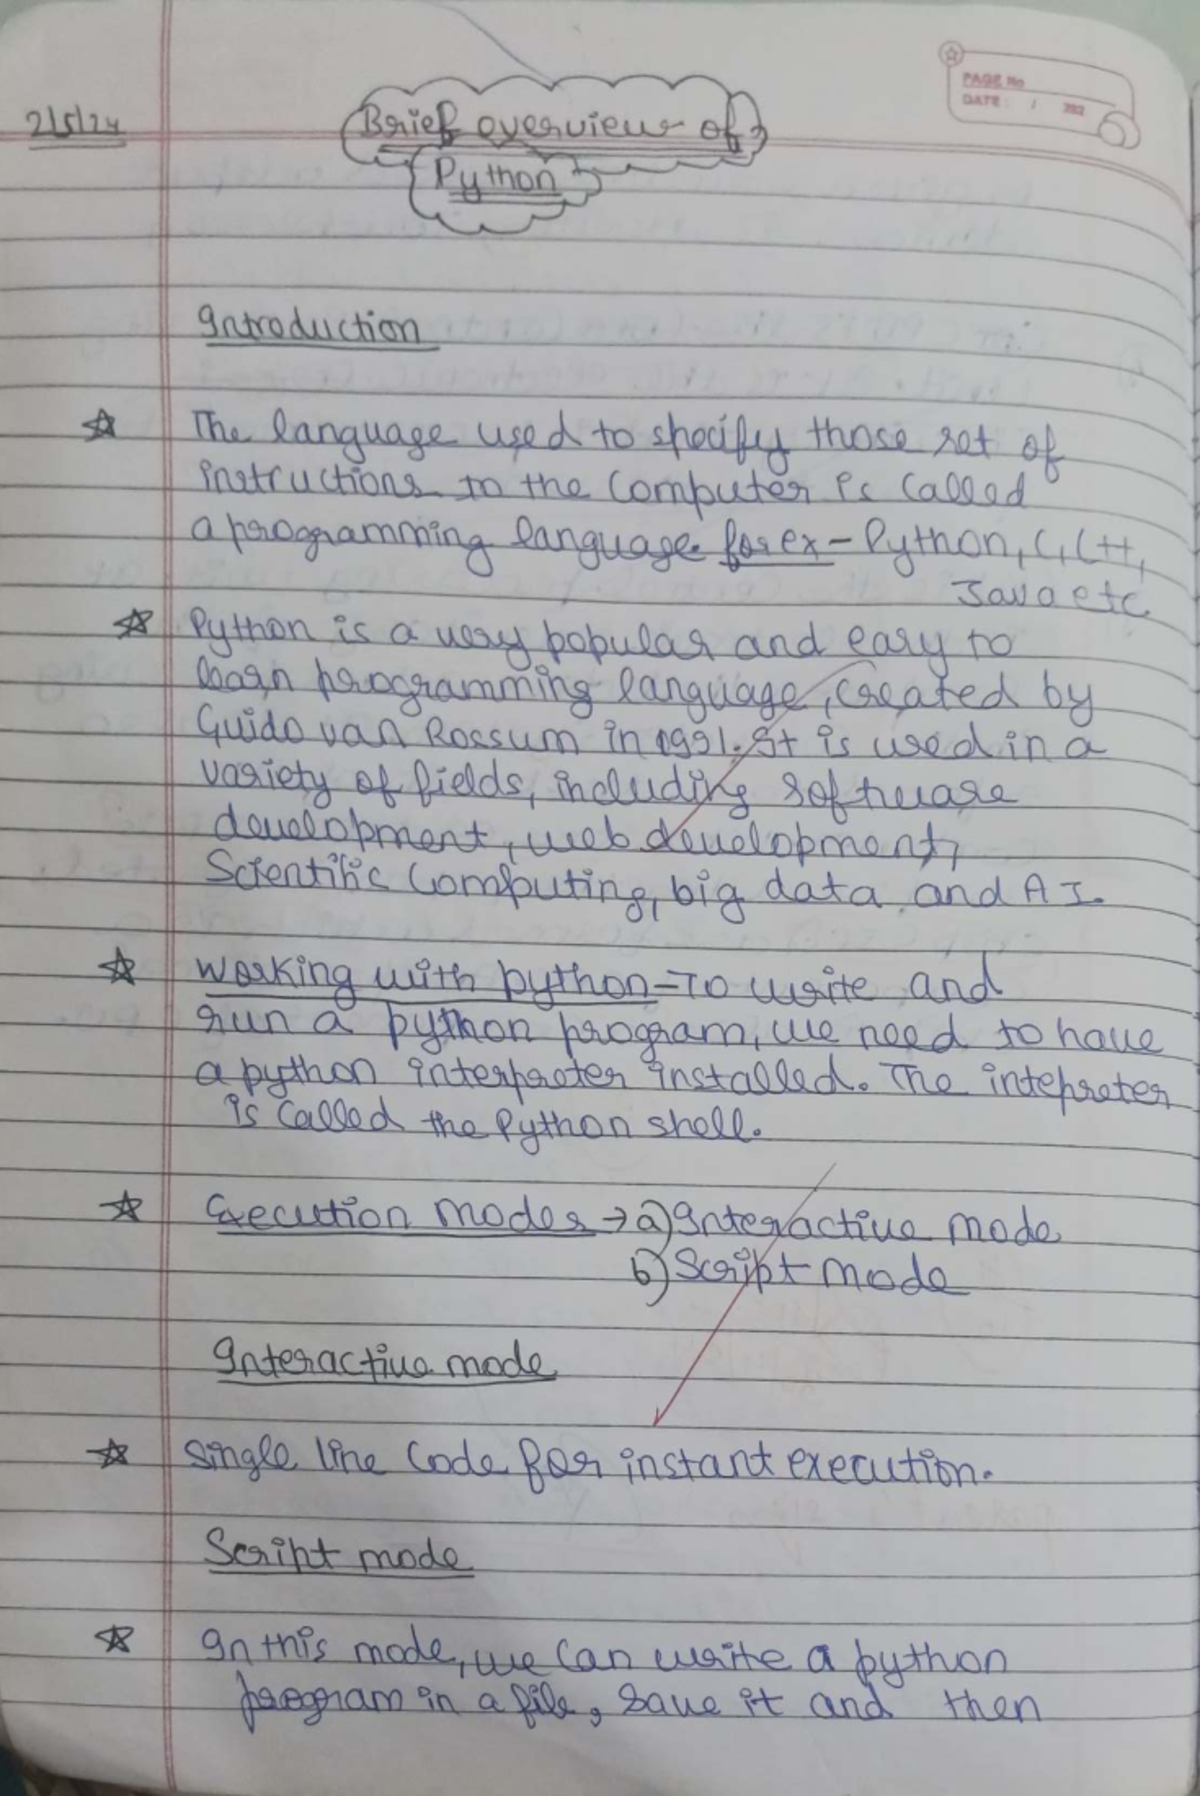 PAGE No
DATE: / 202
2/5/24
Brief overview of
Python
Introduction
☆ The language used to specify those set of
instructions to the computer is called
a programming language. for ex - Python, C, C++,
Java etc
☆ Python is a very popular and easy to
learn programming language, created by
Guido van Rossum in 1991. It is used in a
variety of fields, including software
development, web development,
Scientific computing, big data and AI.
☆ Working with python - To write and
run a python program, we need to have
a python interpreter installed. The intepreter
is called the Python shell.
☆ Execution modes → a) Interactive mode
b) Script mode
Interactive mode
☆ Single line code for instant execution.
Script mode
☆ In this mode, we can write a python
program in a file, save it and then